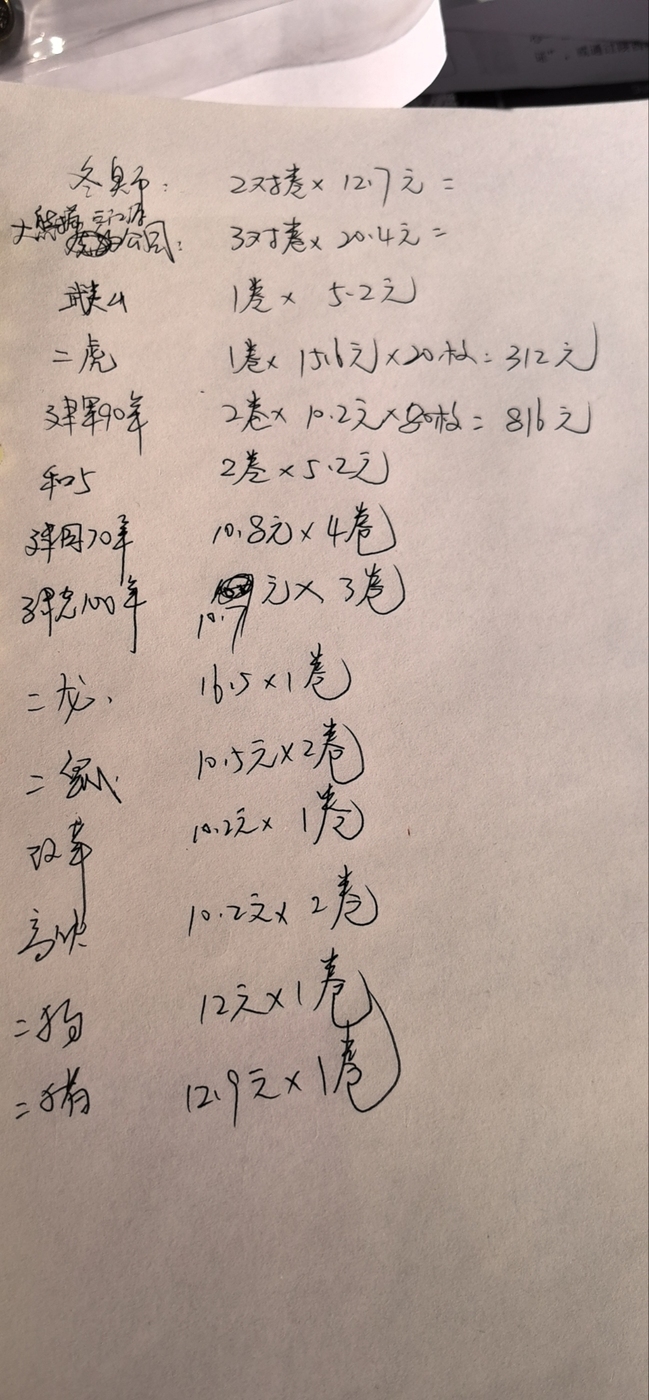 冬奥币: 2对卷 × 12.7元 =
大熊猫 三江源
公园: 3对卷 × 20.4元 =
武夷山 1卷 × 5.2元
二虎 1卷 × 15.6元 × 20枚 = 312元
建军90年 2卷 × 10.2元 × 80枚 = 816元
和5 2卷 × 5.2元
建国70年 10.8元 × 4卷
建党100年 10.7元 × 3卷
二龙. 16.5 × 1卷
二鼠. 10.5元 × 2卷
改革 10.2元 × 1卷
高铁 10.2元 × 2卷
二狗 12元 × 1卷
二猪 12.9元 × 1卷